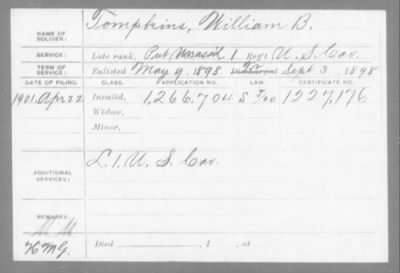 NAME OF SOLDIER: Tompkins, William B.
SERVICE: Late rank, Pvt Unassd. 1 Reg't U. S. Cav.
TERM OF SERVICE: Enlisted May 9, 1898 Sept 3, 1898
DATE OF FILING. CLASS. APPLICATION NO. LAW. CERTIFICATE NO.
1901. Apr 22 Invalid, 1,266,704 1227,176
Widow,
Minor,
ADDITIONAL SERVICES: L. 1. U. S. Cav.
REMARKS:
Died , 1 , at